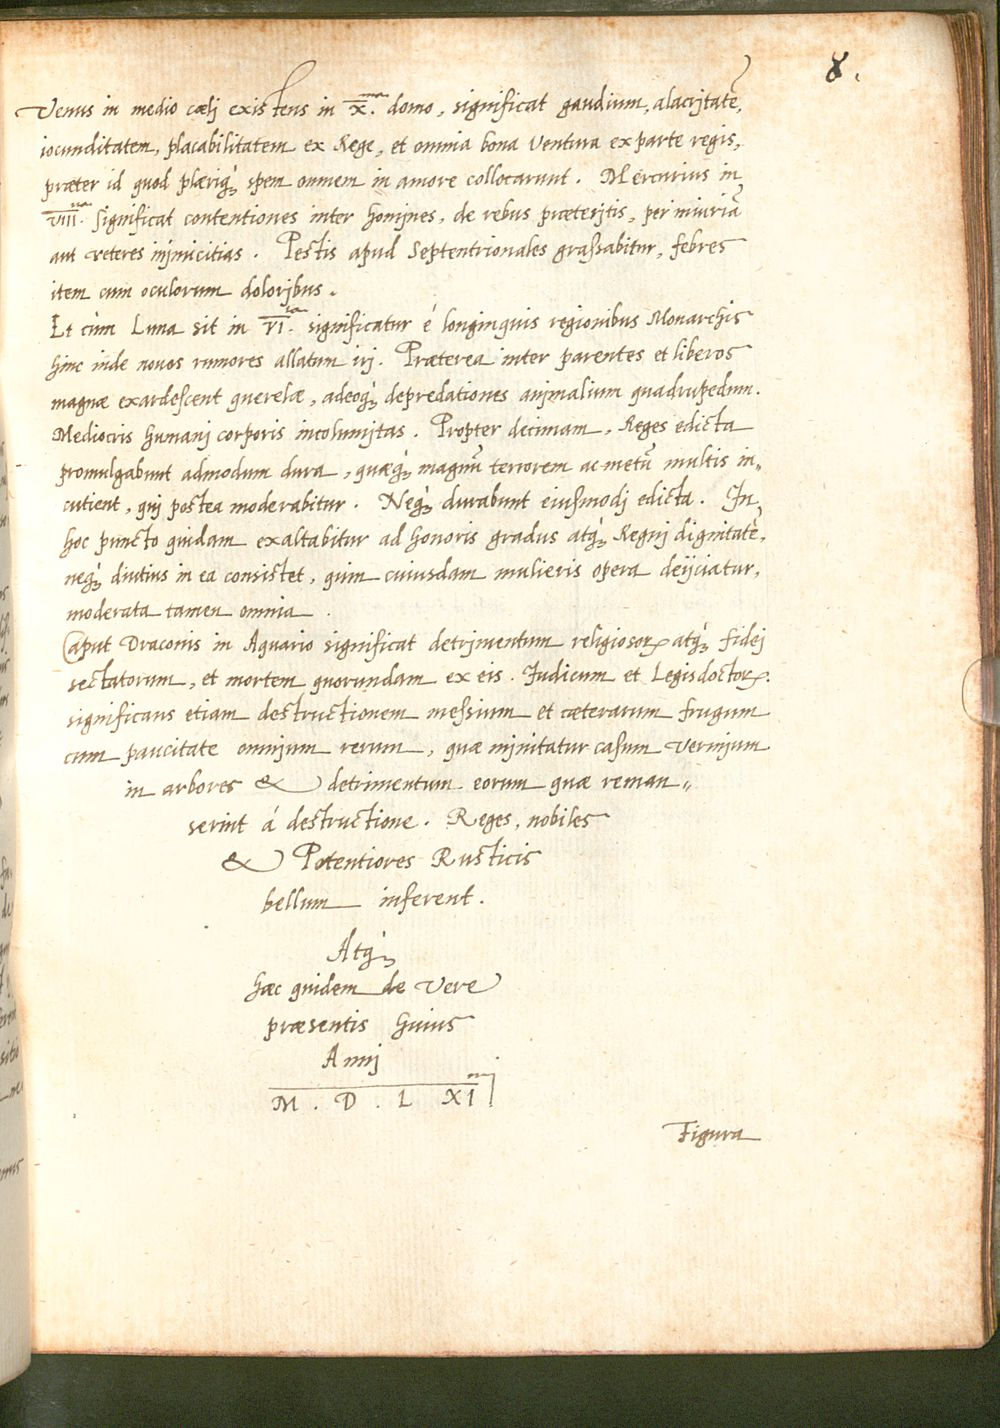 8.
Venus in medio cælj existens in X.ma domo, significat gaudium, alacrjtatē,
iocunditatem, placabilitatem ex Rege, et omnia bona ventura ex parte regis,
præter id quod plæriq; spem omnem in amore collocarunt. Mercurius in
VIII.ua significat contentiones inter homjnes, de rebus præterjtis, per iniuriā
aut veteres injmicitias. Pestis apud Septentrionales graſsabitur, febres
item cum oculorum dolorjbus.
Et cùm Luna sit in VI.ta significatur é longinquis regionibus Monarchis
hinc inde novos rumores allatum irj. Præterea inter parentes et liberos
magnæ exardescent querelæ, adeoq; depredationes anjmalium quadrupedum.
Mediocris humanj corporis incolumjtas. Propter decimam, Reges edicta
promulgabunt admodum dura, quæq; magnū terrorem ac metū multis in„
cutient, qui postea moderabitur. Neq; durabunt eiuſmodj edicta. In
hoc puncto quidam exaltabitur ad honoris gradus atq; Regnj dignitatē,
neq; diutius in ea consistet, quim cuiusdam mulieris opera deijciatur,
moderata tamen omnia.
Caput Draconis in Aquario significat detrjmentum religiosorꝝ atq; fidej
sectatorum, et mortem quorundam ex eis. Judicum et Legisdoctorꝝ.
significans etiam destructionem meſsium et cæterarum frugum
cum paucitate omnjum rerum, quæ mjnitatur casum vermjum
in arbores & detrimentum eorum quæ reman„
serint á destructione. Reges, nobiles
& Potentiores Rusticis
bellum inferent.
Atq;
hæc quidem de Vere
præsentis huius
Annj
M. D. L XIj
Figura